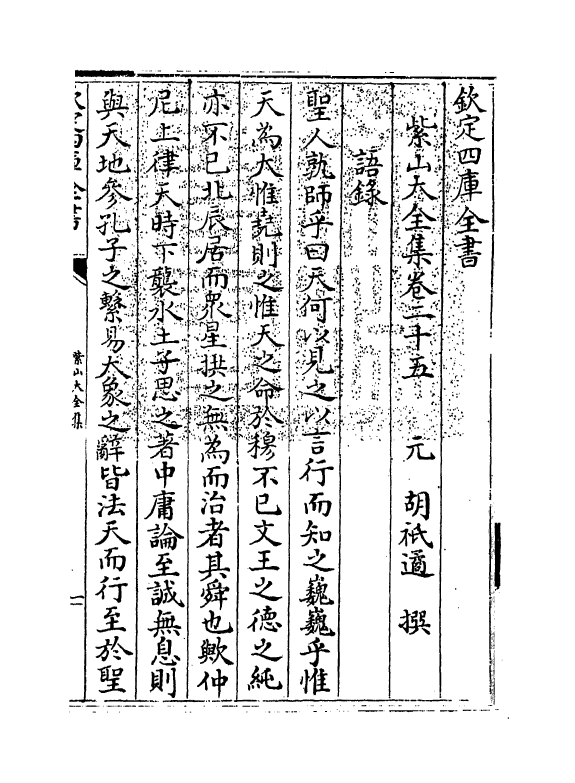 欽定四庫全書
紫山大全集卷二十五 元 胡祗遹 撰
語錄
聖人孰師乎曰天何以見之以言行而知之巍巍乎惟
天為大惟堯則之惟天之命於穆不已文王之德之純
亦不已北辰居而衆星拱之無為而治者其舜也歟仲
尼上律天時下襲水土子思之著中庸論至誠無息則
與天地參孔子之繫易大象之辭皆法天而行至於聖
紫山大全集